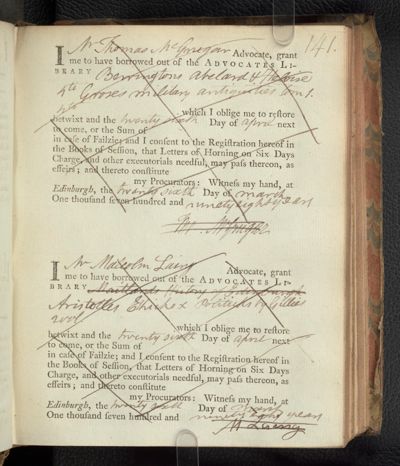 141.
I Mr Thomas McGrugar Advocate, grant
me to have borrowed out of the ADVOCATES LI-
BRARY Berringtons Abelard & Heloise
4to Groses military antiquities tom 1.
4to
which I oblige me to restore
betwixt and the twenty sixth Day of april next
to come, or the Sum of
in case of Failzie; and I consent to the Registration hereof in
the Books of Session, that Letters of Horning on Six Days
Charge, and other executorials needful, may pass thereon, as
effeirs; and thereto constitute
my Procurators: Witness my hand, at
Edinburgh, the twenty sixth Day of march
One thousand seven hundred and ninety eight years
I Mr Malcolm Laing Advocate, grant
me to have borrowed out of the ADVOCATES LI-
BRARY Maitlands History of Edinburgh
Aristotles Ethicks & Politicks by Gillies
2 vols
which I oblige me to restore
betwixt and the twenty sixth Day of april next
to come, or the Sum of
in case of Failzie; and I consent to the Registration hereof in
the Books of Session, that Letters of Horning on Six Days
Charge, and other executorials needful, may pass thereon, as
effeirs; and thereto constitute
my Procurators: Witness my hand, at
Edinburgh, the twenty sixth Day of march
One thousand seven hundred and ninety eight years
M Laing